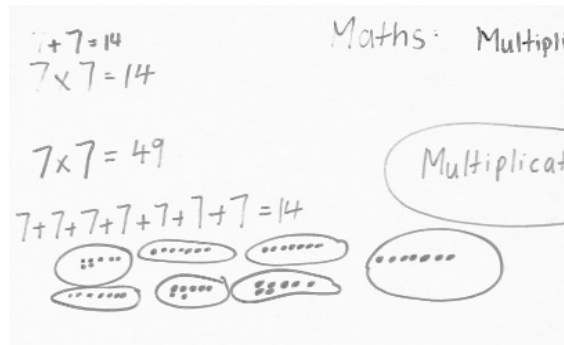 7+7=14
Maths: Multipli
7×7=14
7×7=49
Multiplicat
7+7+7+7+7+7+7=14